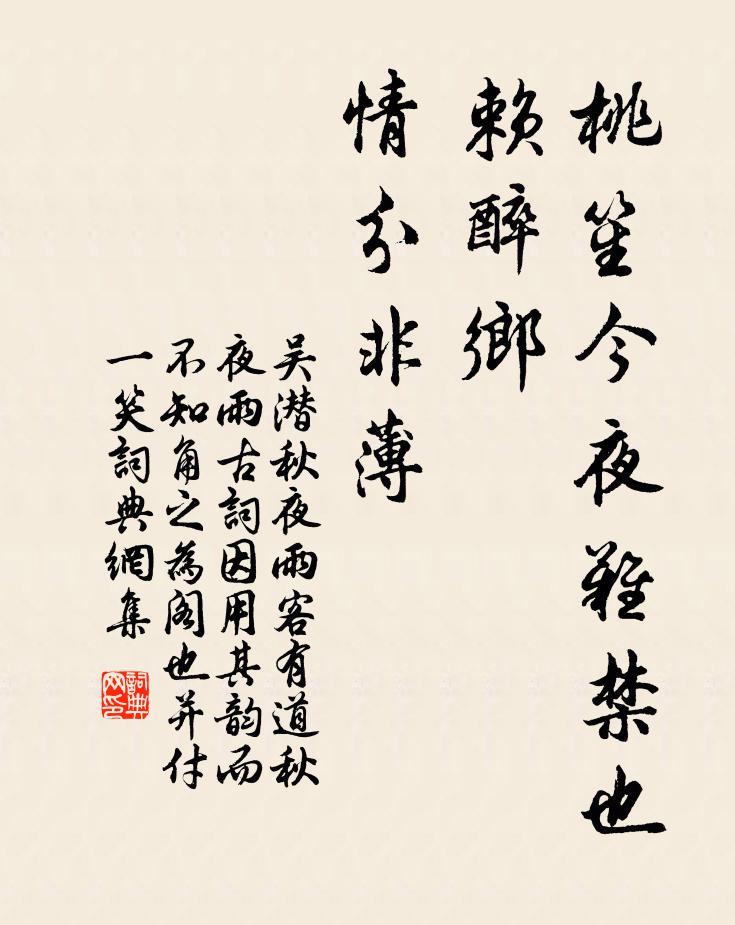 桃笙今夜難禁也
賴醉鄉
情分非薄
吴潜秋夜雨客有道秋
夜雨古詞因用其韵而
不知角之為閣也并付
一笑詞典網集
詞典
网印